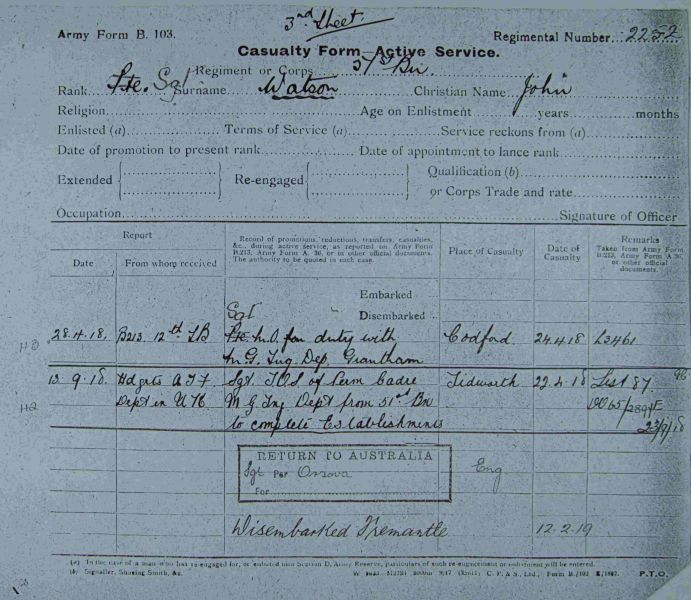 3rd Sheet
Army Form B. 103.
Regimental Number 2252
Casualty Form—Active Service.
Regiment or Corps 51st Bn
Rank Pte. Sgt Surname Watson Christian Name John
Religion Age on Enlistment years months
Enlisted (a) Terms of Service (a) Service reckons from (a)
Date of promotion to present rank Date of appointment to lance rank
Extended Re-engaged Qualification (b)
or Corps Trade and rate
Occupation Signature of Officer
Report
Date From whom received
Record of promotions, reductions, transfers, casualties, &c., during active service, as reported on Army Form B.213, Army Form A. 36, or in other official documents. The authority to be quoted in each case.
Place of Casualty
Date of Casualty
Remarks
Taken from Army Form B.213, Army Form A. 36, or other official documents.
Embarked
Sgt Disembarked
28.4.18. B213 12th TB Pte. M.O. for duty with Codford 24.4.18 L3461
M.G. Tng. Dep. Grantham
13 9.18. Hdqrts A I F Sgt T.O.S of Perm Cadre Tidworth 22.4.18 List 87
HQ Dept in U K M G Tng Dept from 51st Bn DO65/
to complete Establishments 23/9/18
RETURN TO AUSTRALIA
Sgt Per Orsova Eng
For
Disembarked Fremantle 12.2.19
(a) In the case of a man who has re-engaged for, or enlisted into Section D, Army Reserve, particulars of such re-engagement or enlistment will be entered.
(b) Signaller, Shoeing Smith, &c.
P.T.O.